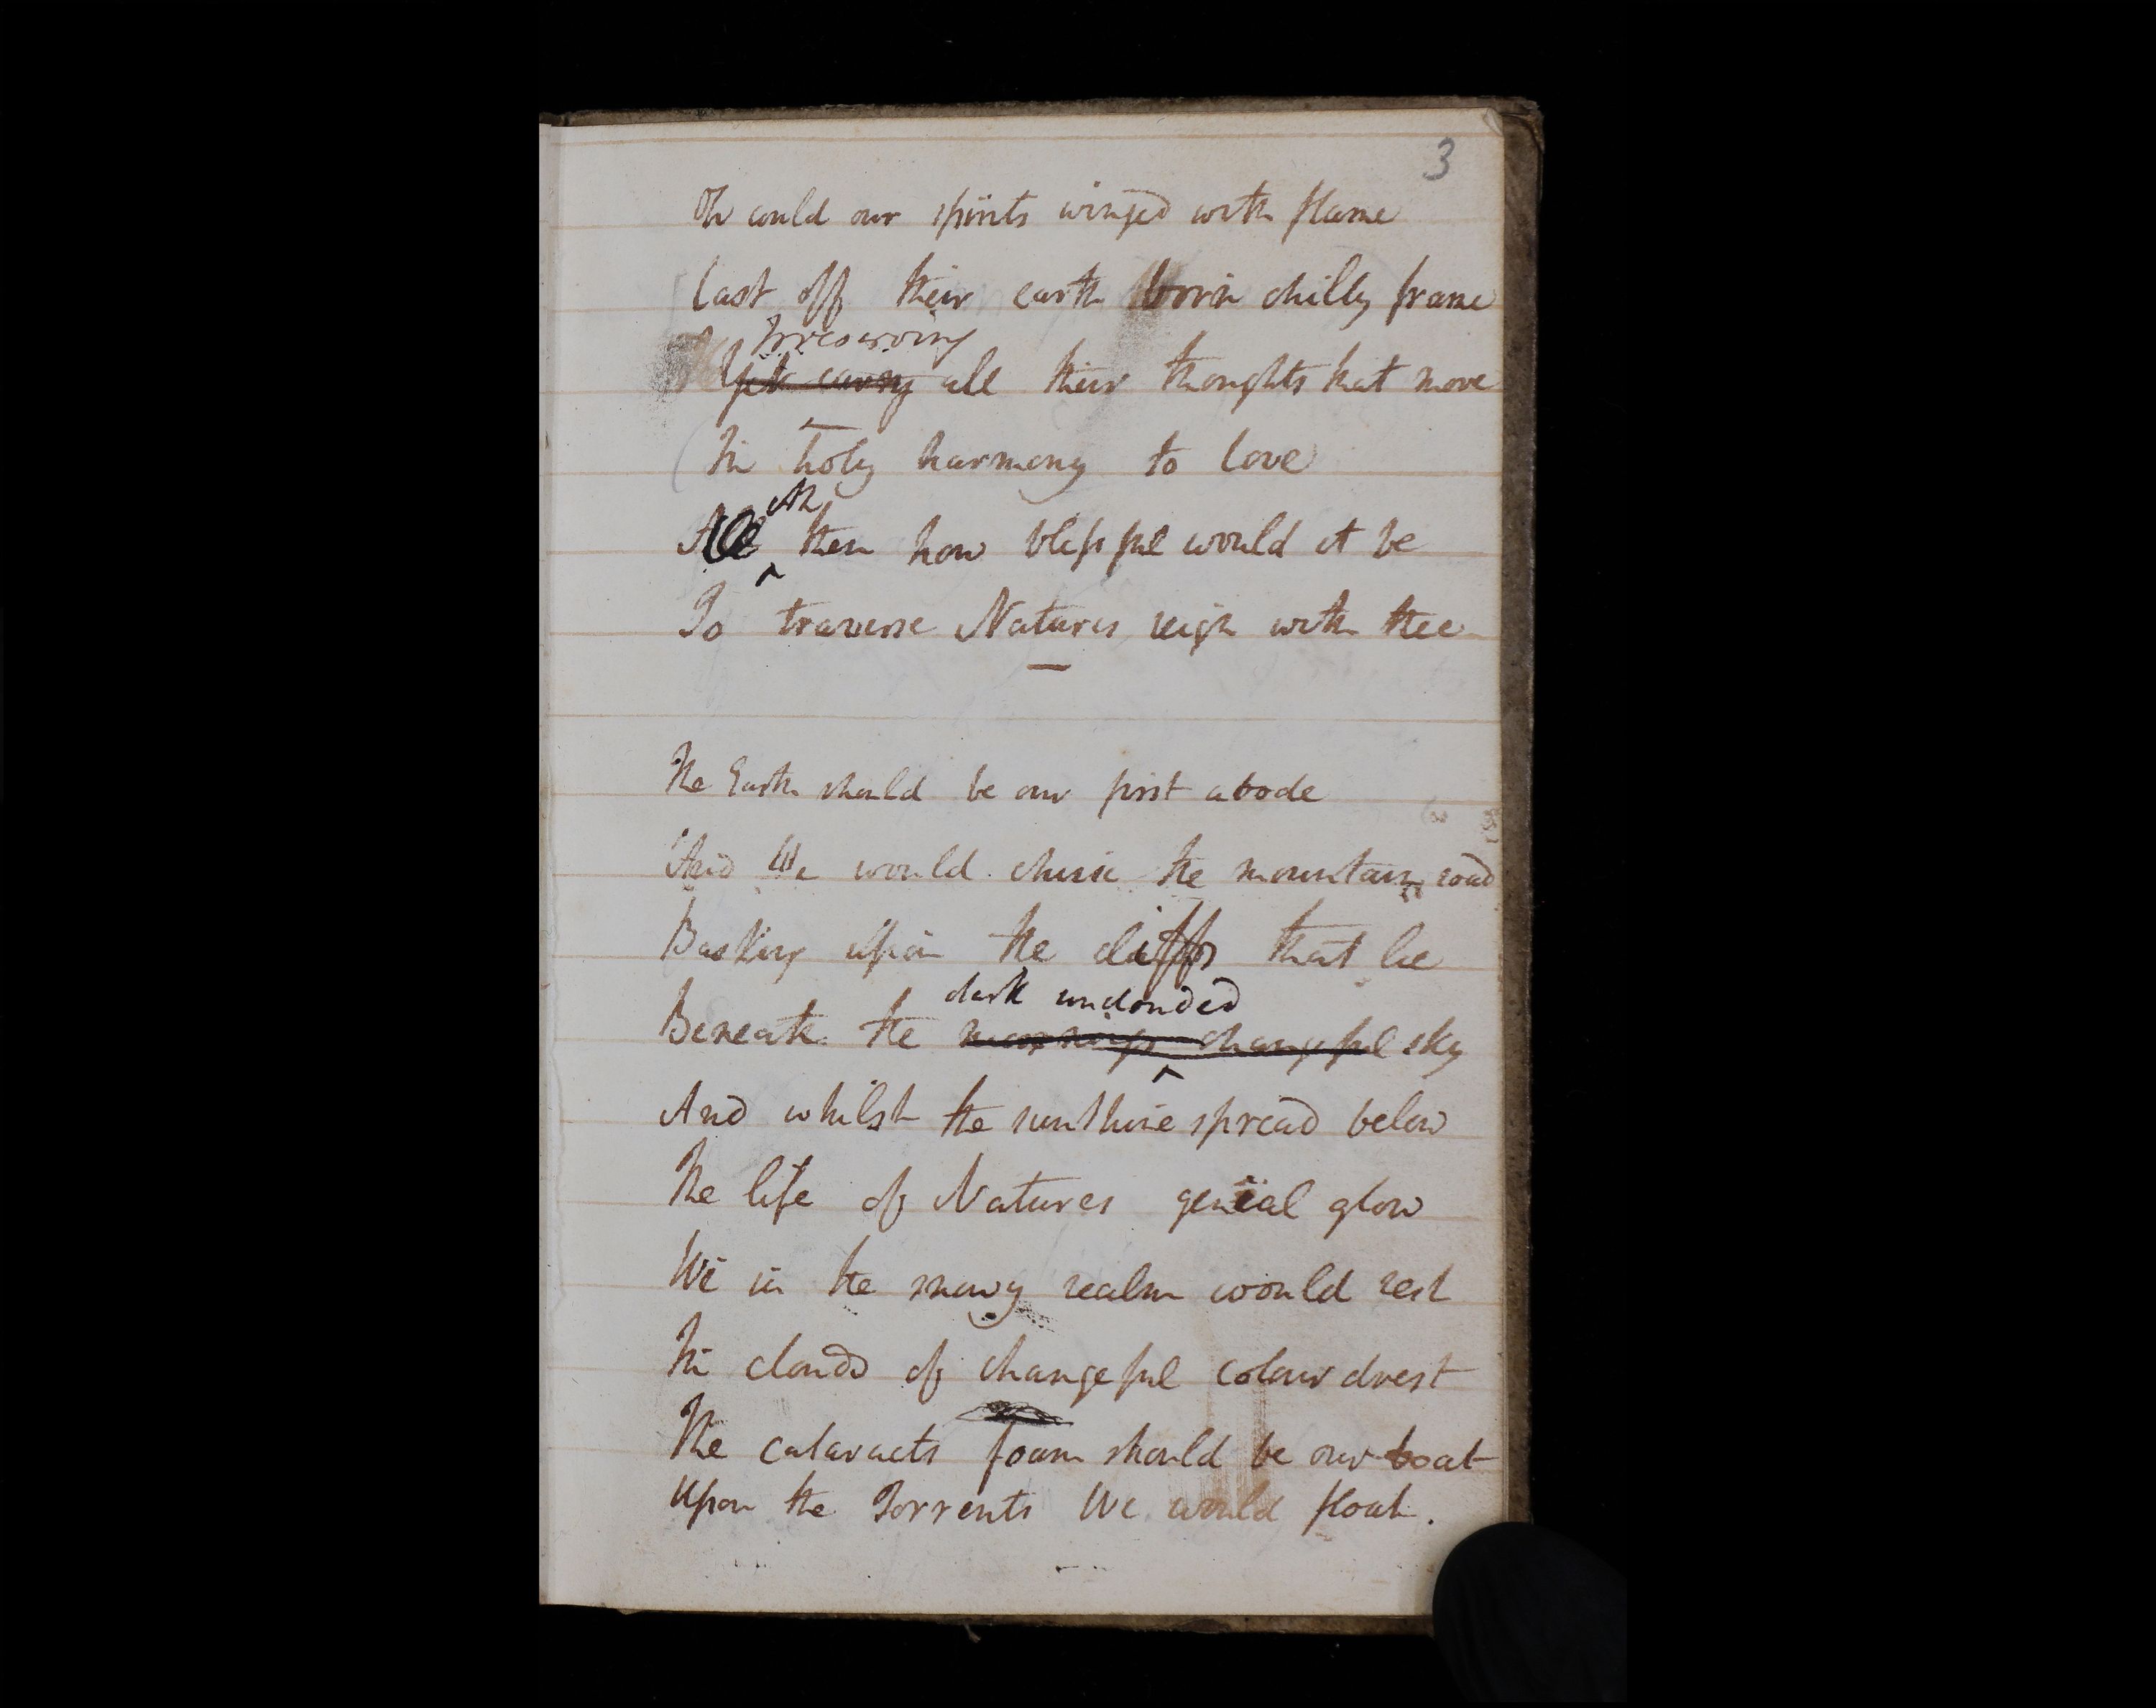 3
Oh could our spirits winged with flame
Cast off their earth born chilly frame
Preserving
Yet carry all their thoughts that move
In holy harmony to love
Ah
then how blissful would it be
To traverse Natures reign with thee
The Earth should be our first abode
And We would chuse the mountain road
Basking upon the cliffs that lie
dark unclouded
Beneath the changeful sky
And whilst the sunshine spread below
The life of Natures genial glow
We in the snowy realm would rest
In clouds of changeful colour drest
The cataracts foam should be our boat
Upon the Torrents We would float.